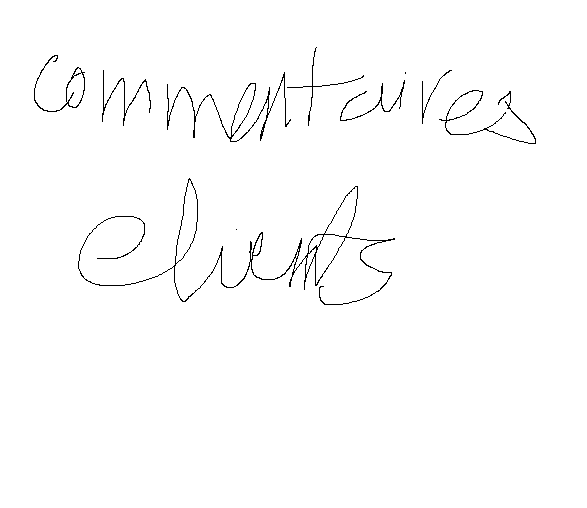 commentaires
clients